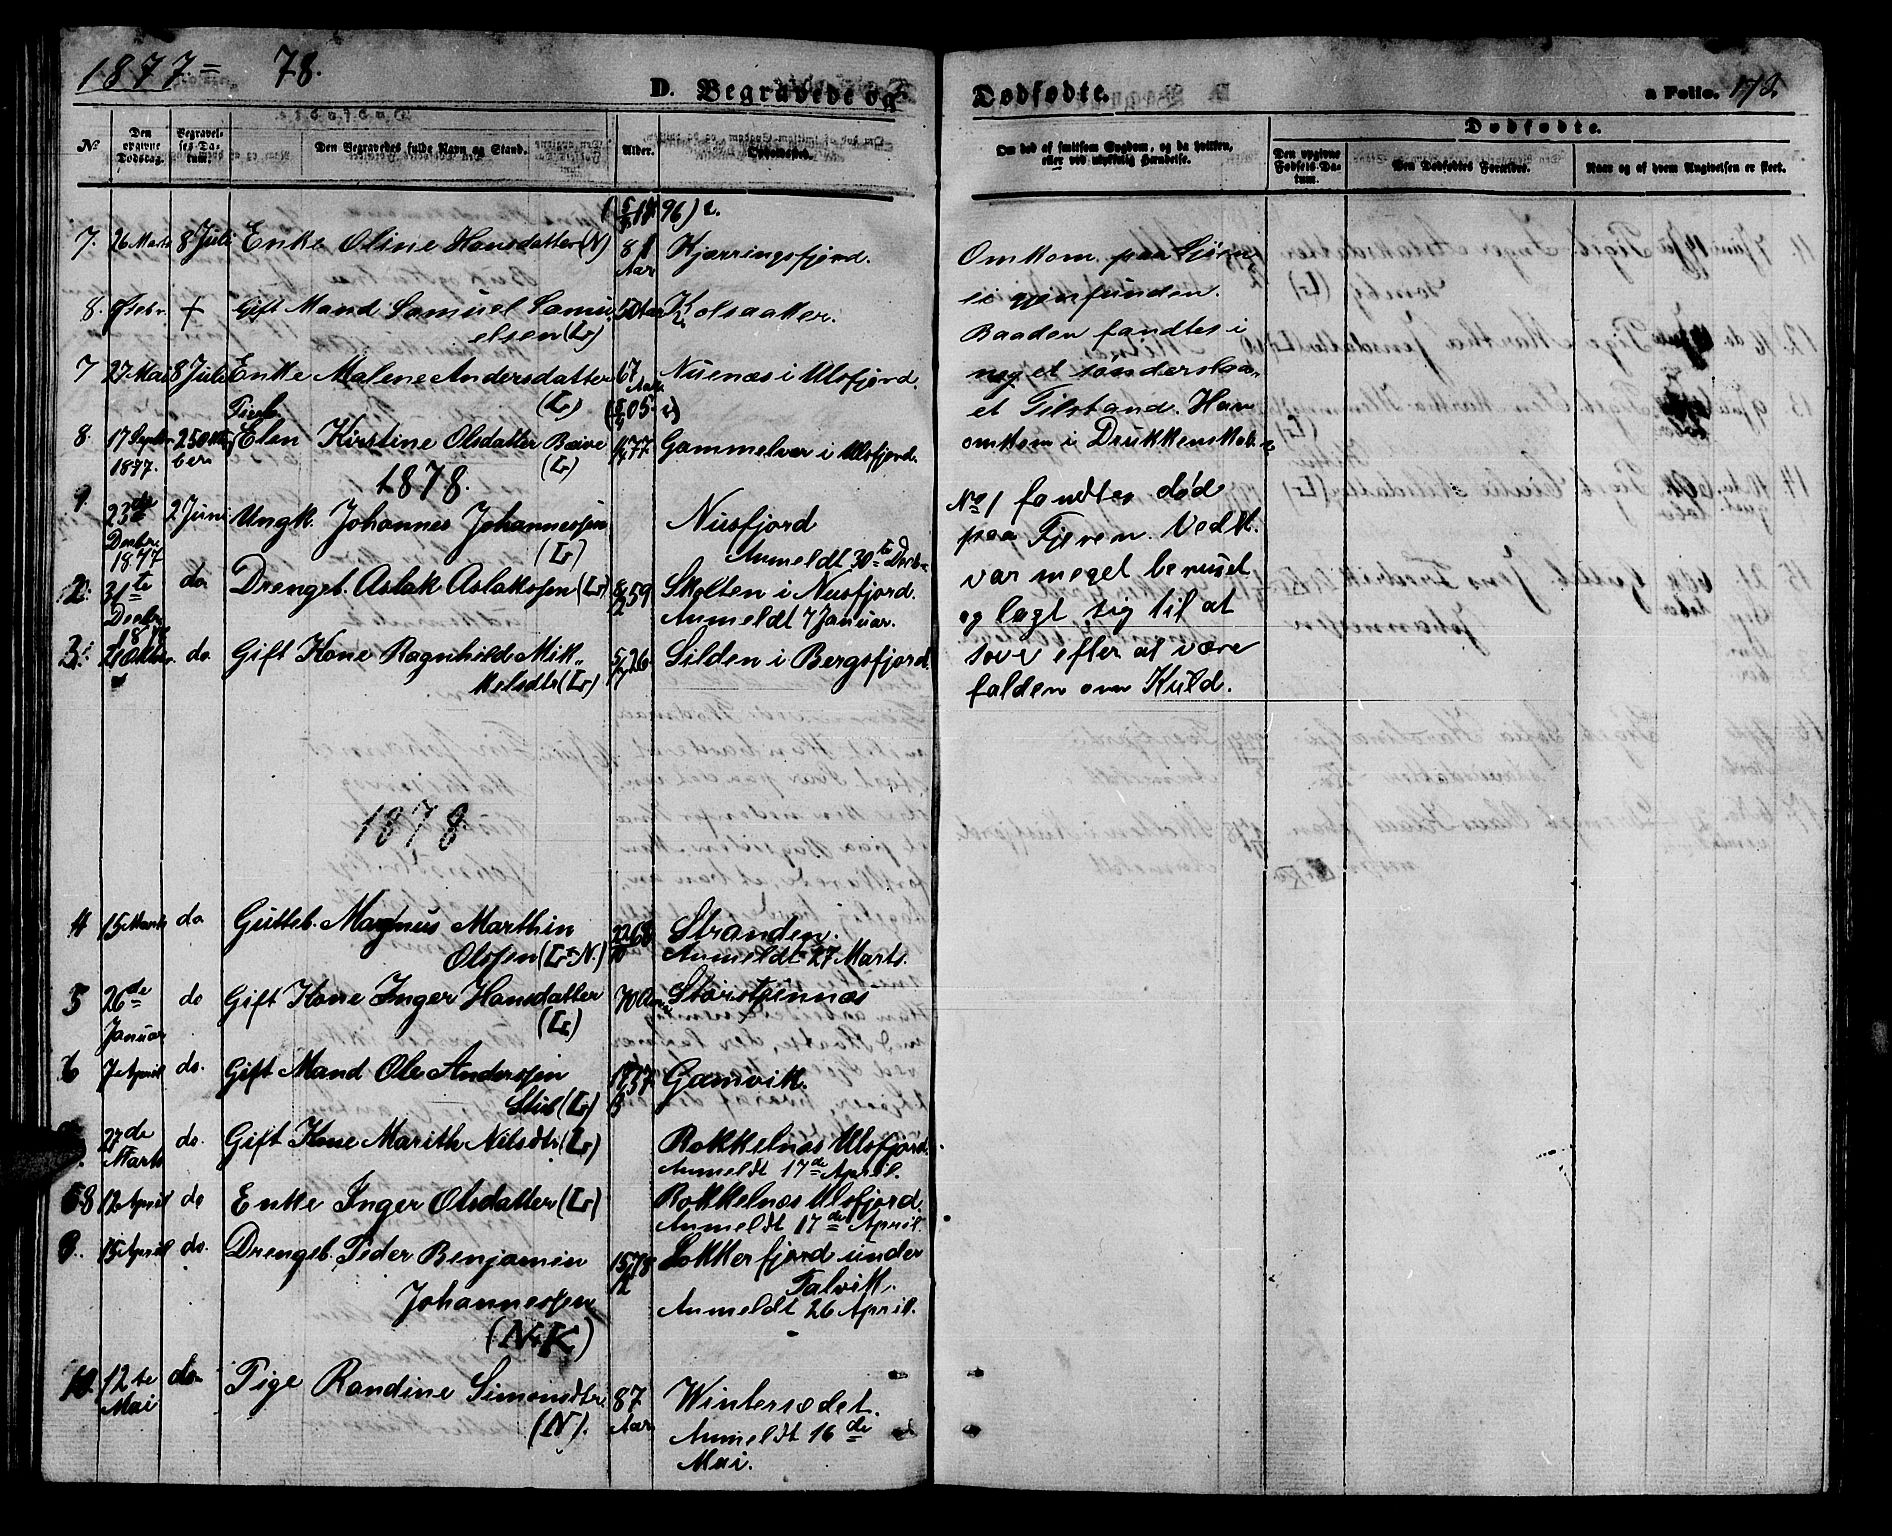 1877 = 78.
D. Begravede og
№
Den opgivne Dødsdag.
Begravelses-Datum.
Den Begravedes fulde Navn og Stand.
Alder.
(5/8 1796) ɔ.
7. 26 Marts 8 Juli Enke Oline Hansdatter (N) 81 Aar Kjærringsfjord.
8. Febr. + Gift Mand Samuel Samu
elsen (L) 50 Aar Kolsaaker.
7 27 Mai 8 Juli Enke Malene Andersdatter
(L) 67 Aar Nuenæs i Ulsfjord.
Pigeb.
8. 17 Septbr 1877. 25 Oktober Elen Kirstine Olsdatter Baive
(L) 77 Gammelvær i Ulsfjord.
1878.
1 23de Decbr. 1877 2 Juni Ungk. Johannes Johannessen
(L) Nusfjord
Anmeldt 30te Decb=
2. 31te Decbr. 1877 do Drengeb. Aslak Aslaksen (L) 8/2 59 Skolten i Nusfjord.
Anmeldt 7 Januar.
3. Oktbr. do Gift Kone Ragnhild Mik=
kelsdtr (L) 26 Silden i Bergsfjord.
1878.
4 15 Marts do Gutteb. Magnus Marthin
Olsen (L+N.) 22/10 68 Stranden.
Anmeldt 27 Marts.
5 26de Januar do Gift Kone Inger Hansdatter
(L) 70 Aar Storstennæs
6 7 April do. Gift Mand Ole Andersen
Stub (L) 37 Gamvik.
27de Marts do. Gift Kone Marith Nilsdtr (L) Rokkelnæs Ulsfjord.
Anmeldt 17de April.
8 12 April do Enke Inger Olsdatter (L) Rokkelnæs Ulsfjord.
Anmeldt 17de April.
9. 15 April do. Drengeb. Peder Benjamin
Johannessen
(N.K) 15/12 78 Lokkerfjord under
Talvik.
Anmeldt 26 April.
10. 12te Mai do. Pige Randine Simonsdtr.
(N). 87 Aar Wintersædet.
Anmeldt 16de
Mai.
Dødfødte.
a Folio. 173.
Om død af smitsom Sygdom, og da hvilken,
eller ved ulykkelig Hændelse.
Dødfødte.
Den opgivne Fødsels-Datum.
Den Dødfødtes Forældre.
Naar og af hvem Angivelsen er skeet.
Omkom paa Sjøen
ei gjenfunden.
Baaden fandtes i
meget sønderslaa=
et Tilstand. Han
omkom i Drukkenskab.
No 1 fandtes død
paa Fjæren. Vedk.
var meget beruset
og lagt sig til at
sove efter at være
falden om Kuld.